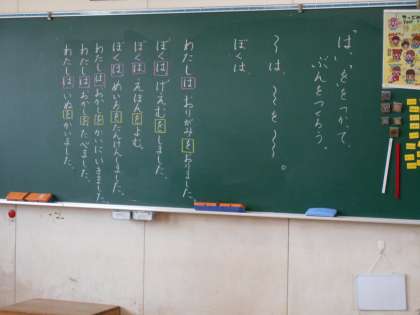 「は、」「を」をつかって、
ぶんをつくろう。
〜は、〜を〜〜。
ぼくは
わたしは おりがみをおりました。
ぼくは げえむをしました。
ぼくは えほんをよむ。
ぼくは めいろをたんけんしました。
わたしは おかしをかいにいきました。
わたしは おかしをたべました。
わたしは いぬをかいました。